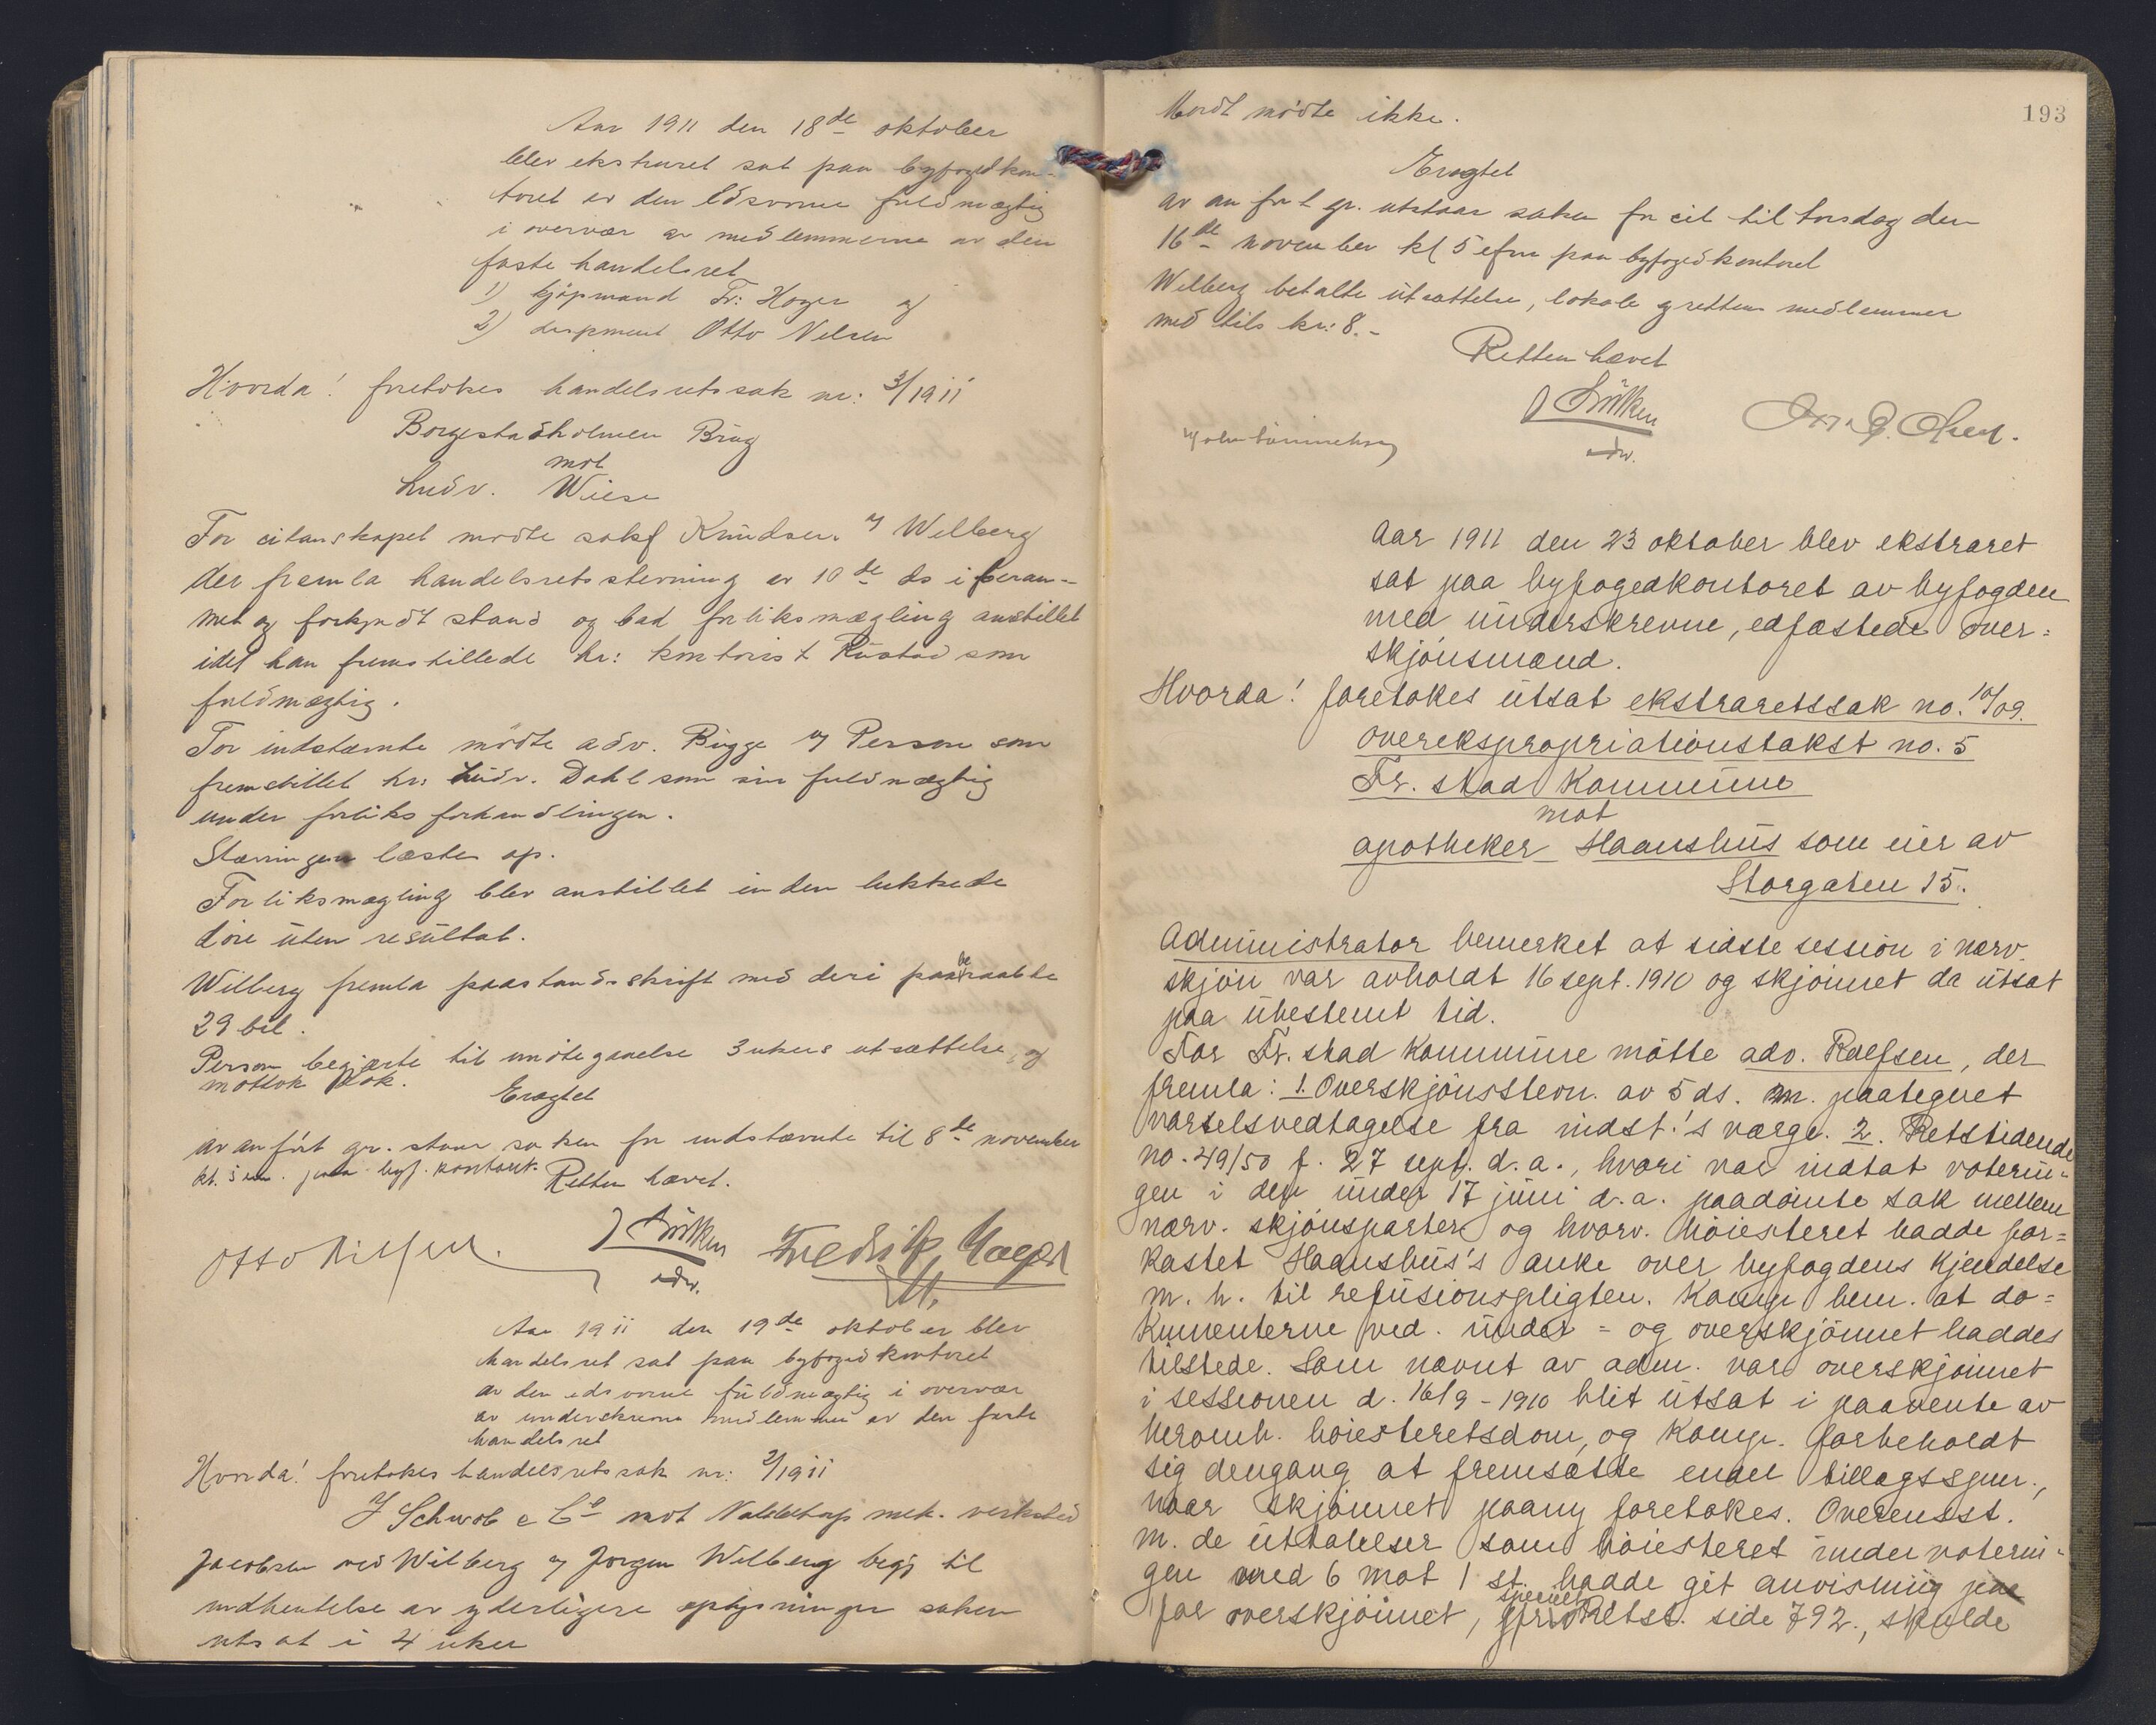 Aar 1911 den 18de oktober
blev ekstraret sat paa byfogedkon-
toret av den edsvorne fuldmægtig
i overvær av medlemmerne av den
faste handelsret
1) kjøpmand Fr: Hager og
2) Otto Nilsen
Hvorda! foretokes handelsretssak nr: 3/1911
Borgestadholmen Brug
mot
Ludv. Wiese
For citanskapet mødte sakf Knudsen v/ Wilberg
der fremla handelsretsstevning av 10de ds i beram-
met og forkyndt stand og bad forliksmægling anstillet
idet han fremstillede hr: kontorist Rustad som
fuldmægtig.
For indstævnte mødte adv. Bugge v/ Person som
fremstillet hr: Ludv. Dahl som sin fuldmægtig
under forliksforhandlingen.
Stævningen læstes op.
Forliksmægling blev anstillet inden lukkede
døre uten resultat.
Wilberg fremla paastandsskrift med deri paabe raabte
29 bil.
Person begjærte til imøtegaaelse 3 ukers utsættelse, og
mottok dok.
Eragtet
Av anført gr. staar saken for indstævnte til 8de november
kl. 5 em. paa byf. kontoret.
Retten hævet.
Otto Nilsen.
J Sütken
edsv.
Fredrik Hager
Aar 1911 den 19de oktober blev
handelsret sat paa byfogedkontoret
av den edsvorne fuldmægtig i overvær
av underskrevne medlemmer av den faste
handelsret
Hvorda! foretokes handelsretssak nr: 2/1911
J Schwob & Co mot mek. verksted
Jacobsen ved Wilberg v/ Jørgen Wilberg begj til
indhentelse av yderligere oplysninger saken
utsat i 4 uker
193
Mordt mødte ikke.
Eragtet
Av anført gr. utstaar saken for cit til torsdag den
16de november kl 5 efm paa byfogedkontoret
Wilberg betalte utsættelse, lokale og rettens medlemmer
med tils kr: 8.-
Retten hævet
J Sütken
edsv.
Olsen.
Aar 1911 den 23 oktober blev ekstraret
sat paa byfogedkontoret av byfogden
med underskrevne, edfæstede over=
skjønsmænd.
Hvorda! foretokes utsat ekstraretssak no. 10/09.
overekspropriationstakst no. 5
Fr. stad Kommune
mot
apotheker Haanshus som eier av
Storgaten 15.
Administrator bemerket at sidste session i nærv.
skjøn var avholdt 16 sept. 1910 og skjønnet da utsat
paa ubestemt tid.
For Fr. stad Kommune møtte adv. Roefsen, der
fremla: 1. Overskjønsstevn. av 5 ds. m. paategnet
varselsvedtagelse fra indst.'s værge. 2. Retstidende
no. 49/50 f. 27 sept. d.a., hvori var indtat voterin-
gen i den under 17 juni d.a. paadømte sak mellem
nærv. skjønsparter og hvorv. høiesteret hadde for=
kastet Haanshus's anke over byfogdens kjendelse
m. h. til refusionspligten. Komp bem. at do=
kumenterne ved. under = og overskjønnet haddes
tilstede. Som nævnt av adm. var overskjønnet
i sessionen d. 16/9 - 1910 blit utsat i paavente av
heromh. høiesteretsdom, og Komp. forbeholdt
sig dengang at fremsætte endel tillægsspm.,
naar skjønnet paany foretokes. Overensst.
m. de uttalelser som høiesteret under voterin-
gen med 6 mot 1 st. hadde git anvisning paa
for overskjønnet, specielt Retst. side 792., skulde